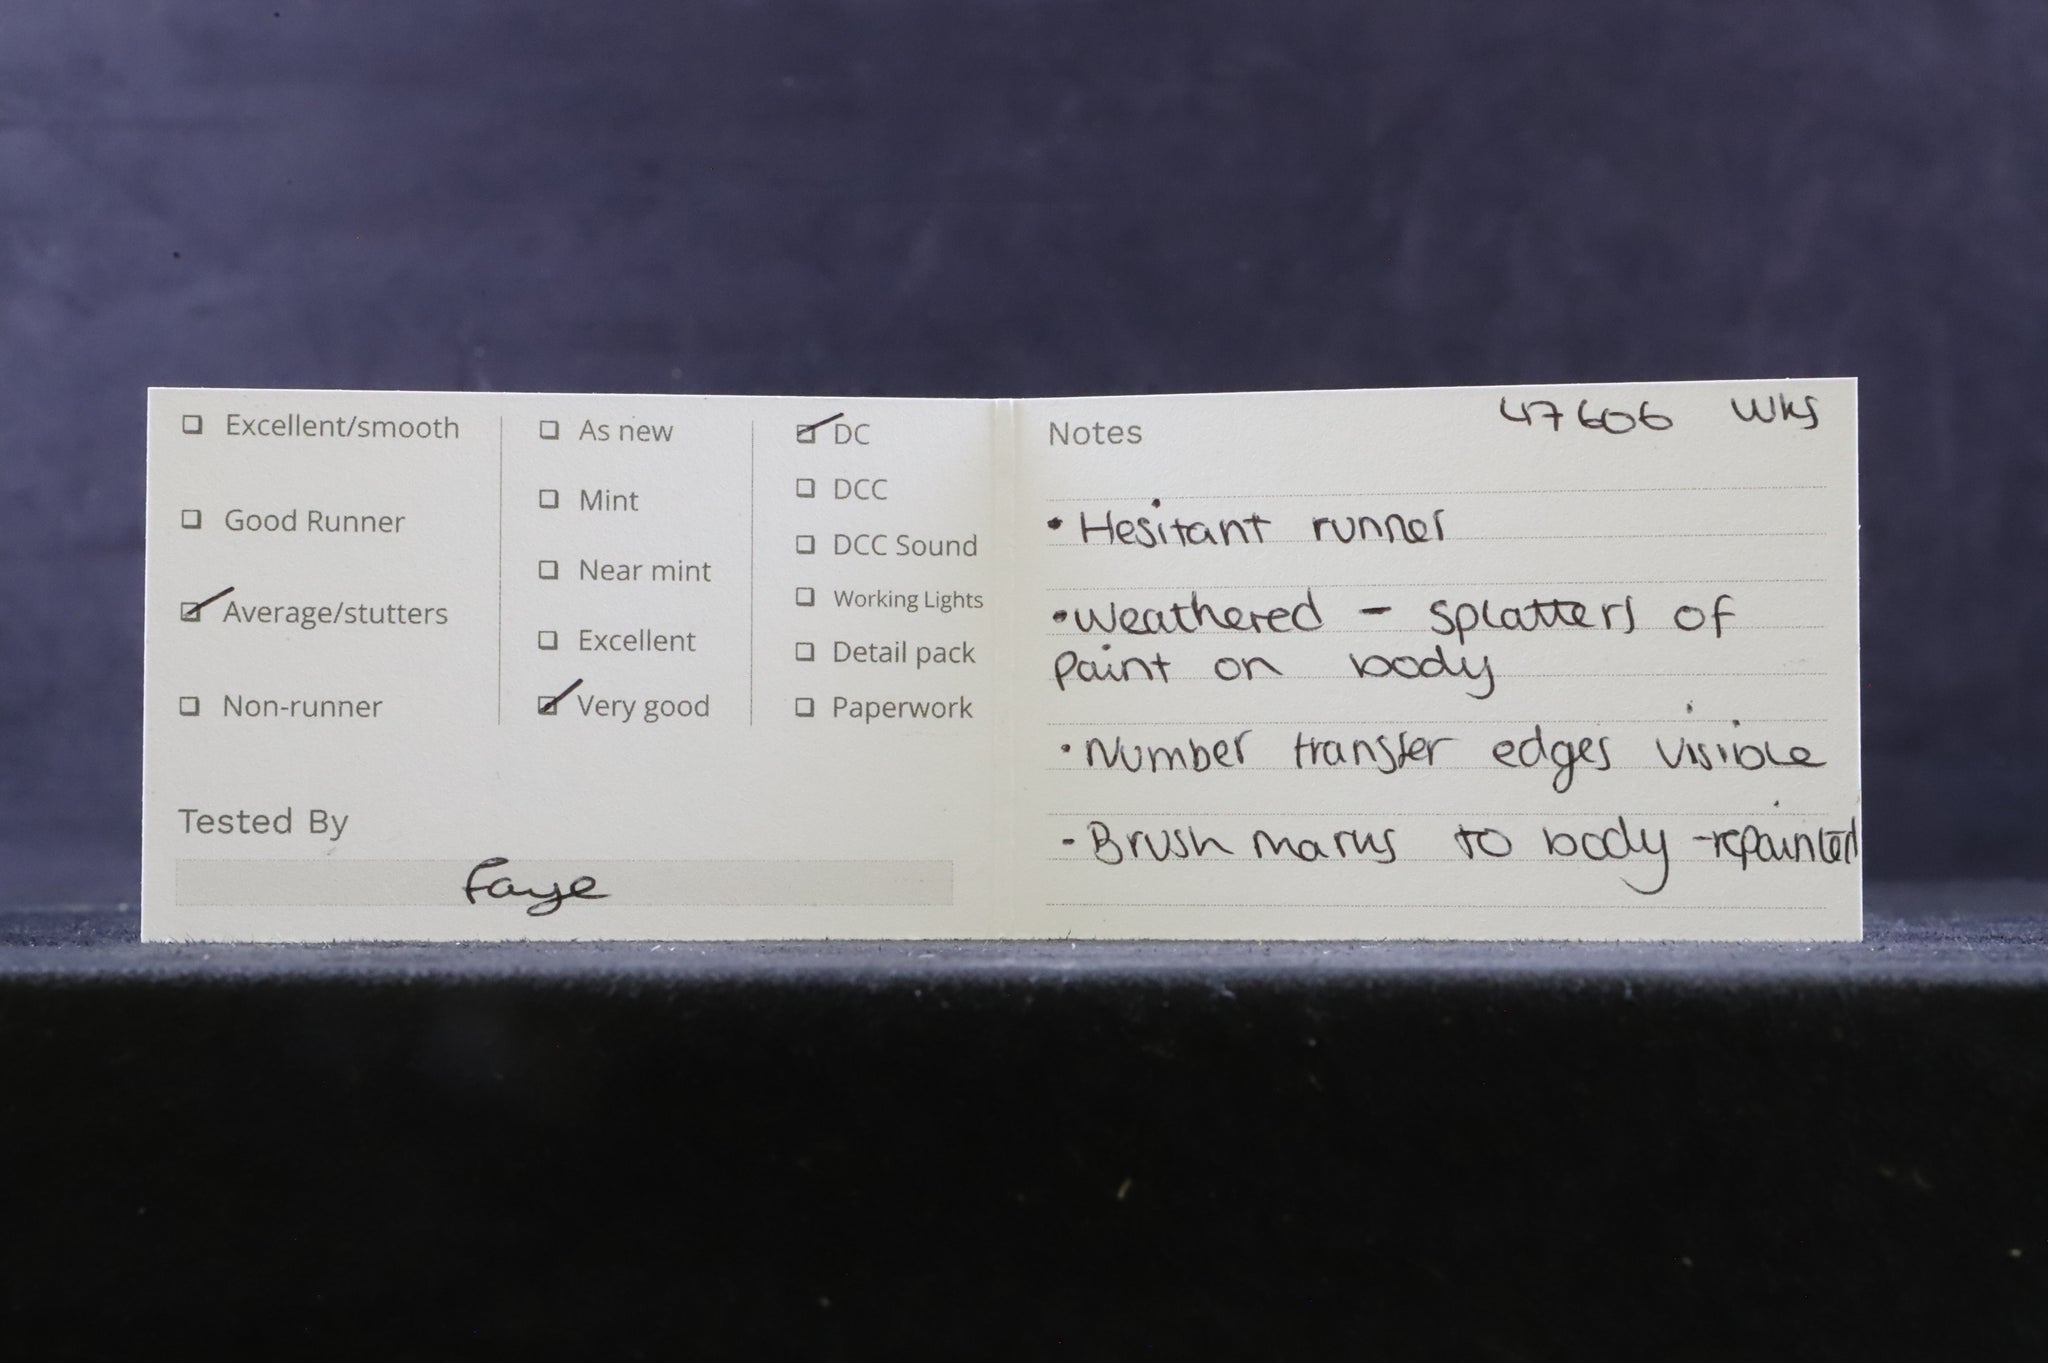 ☐ Excellent/smooth
☐ Good Runner
☑ Average/stutters
☐ Non-runner
☐ As new
☐ Mint
☐ Near mint
☐ Excellent
☑ Very good
☑ DC
☐ DCC
☐ DCC Sound
☐ Working Lights
☐ Detail pack
☐ Paperwork
Tested By
Faye
Notes
47606 Wks
• Hesitant runner
• Weathered - splatters of
paint on body
• Number transfer edges visible
- Brush marks to body - repainted